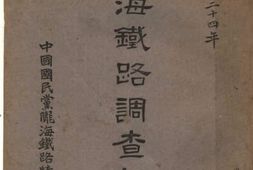 二十四年
海鐵路調查
中國國民黨隴海鐵路特